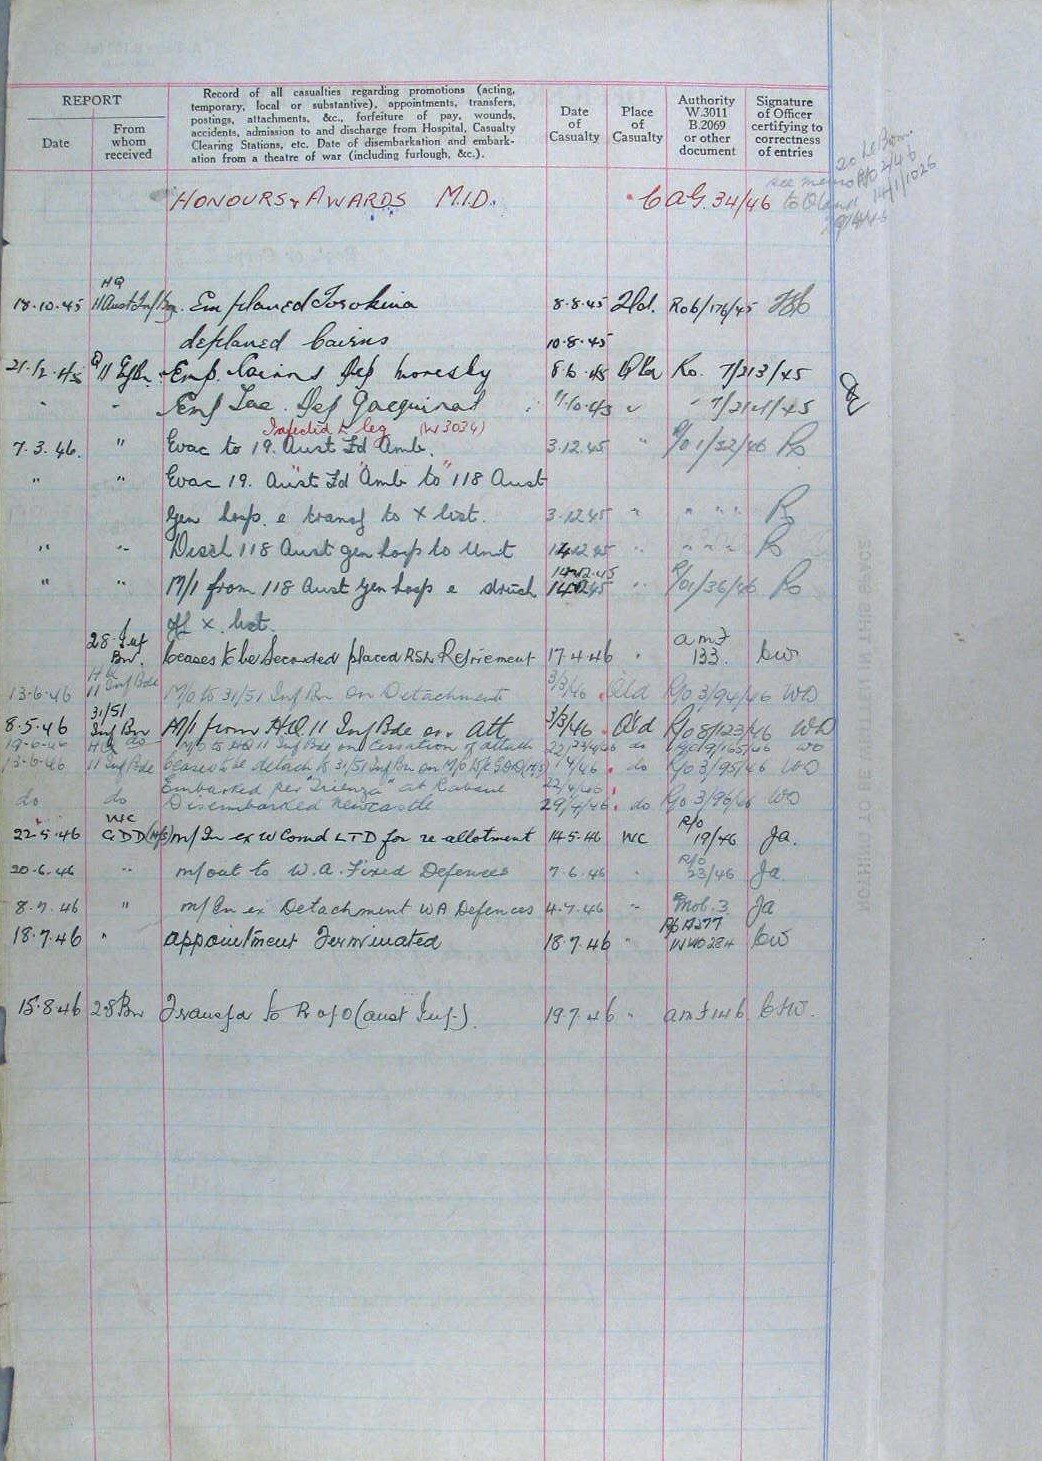 REPORT
Date
From whom received
Record of all casualties regarding promotions (acting,
temporary, local or substantive), appointments, transfers,
postings, attachments, &c., forfeiture of pay, wounds,
accidents, admission to and discharge from Hospital, Casualty
Clearing Stations, etc. Date of disembarkation and embark-
ation from a theatre of war (including furlough, &c.).
Date of Casualty
Place of Casualty
Authority W.3011 B.2069 or other document
Signature of Officer certifying to correctness of entries
HONOURS & AWARDS M.I.D. CAG. 34/46
HQ
18.10.45 11 Aust Inf Bde. Emplaned Torokina 8.8.45 Qld. Ro 6/176/45
deplaned Cairns 10.8.45
Emp. Cairns Dep Moresby Ro. 7/213/45
Emp Lae. Dep Jacquinot
Infected L leg (W3034)
7.3.46. " Evac to 19. Aust Fd Amb. 3.12.45 "
" " Evac 19. Aust Fd Amb to 118 Aust
Gen hosp. e transf to X list. 3.12.45 " " " "
" " Disch 118 Aust gen hosp to Unit
14.12.45
" " M/I from 118 Aust gen hosp e struck R/O 1/36/46
off X list.
28 Inf Bn. Ceases to be Seconded placed RSL Retirement 17.4.46 " AMF 133. CW
13-6-46 HQ 11 Inf Bde M/O to 31/51 Inf Bn on Detachment 3/3/46 Qld R/O 3/94/46 WD
8.5.46 31/51 Inf Bn M/I from H.Q. 11 Inf Bde on Att 3/3/46 Qld R/O 8/123/46 WD
19-6-46 HQ do M/O to HQ 11 Inf Bde on cessation of attach do
13-6-46 11 Inf Bde Ceases to be detach to 31/51 Inf Bn on M/O do R/O 3/95/46 WD
Embarked per "Trienza" at Rabaul 22/4/46
do do Disembarked Newcastle 29/4/46 do R/O 3/96/46 WD
WC
22-5-46 GDD m/In ex W Comd LTD for re allotment 14.5.46 WC R/O 19/46 Ja.
20-6-46 " m/out to W.A. Fixed Defences 7-6-46 " R/O 23/46 Ja
8-7-46 " m/In ex Detachment WA Defences 4-7-46 " Mob. 3 Ja
18.7.46 " Appointment Terminated 18.7.46 " CW
15.8.46 28 Bn Transfer to R of O (Aust Inf). 19.7.46 " AMF 146